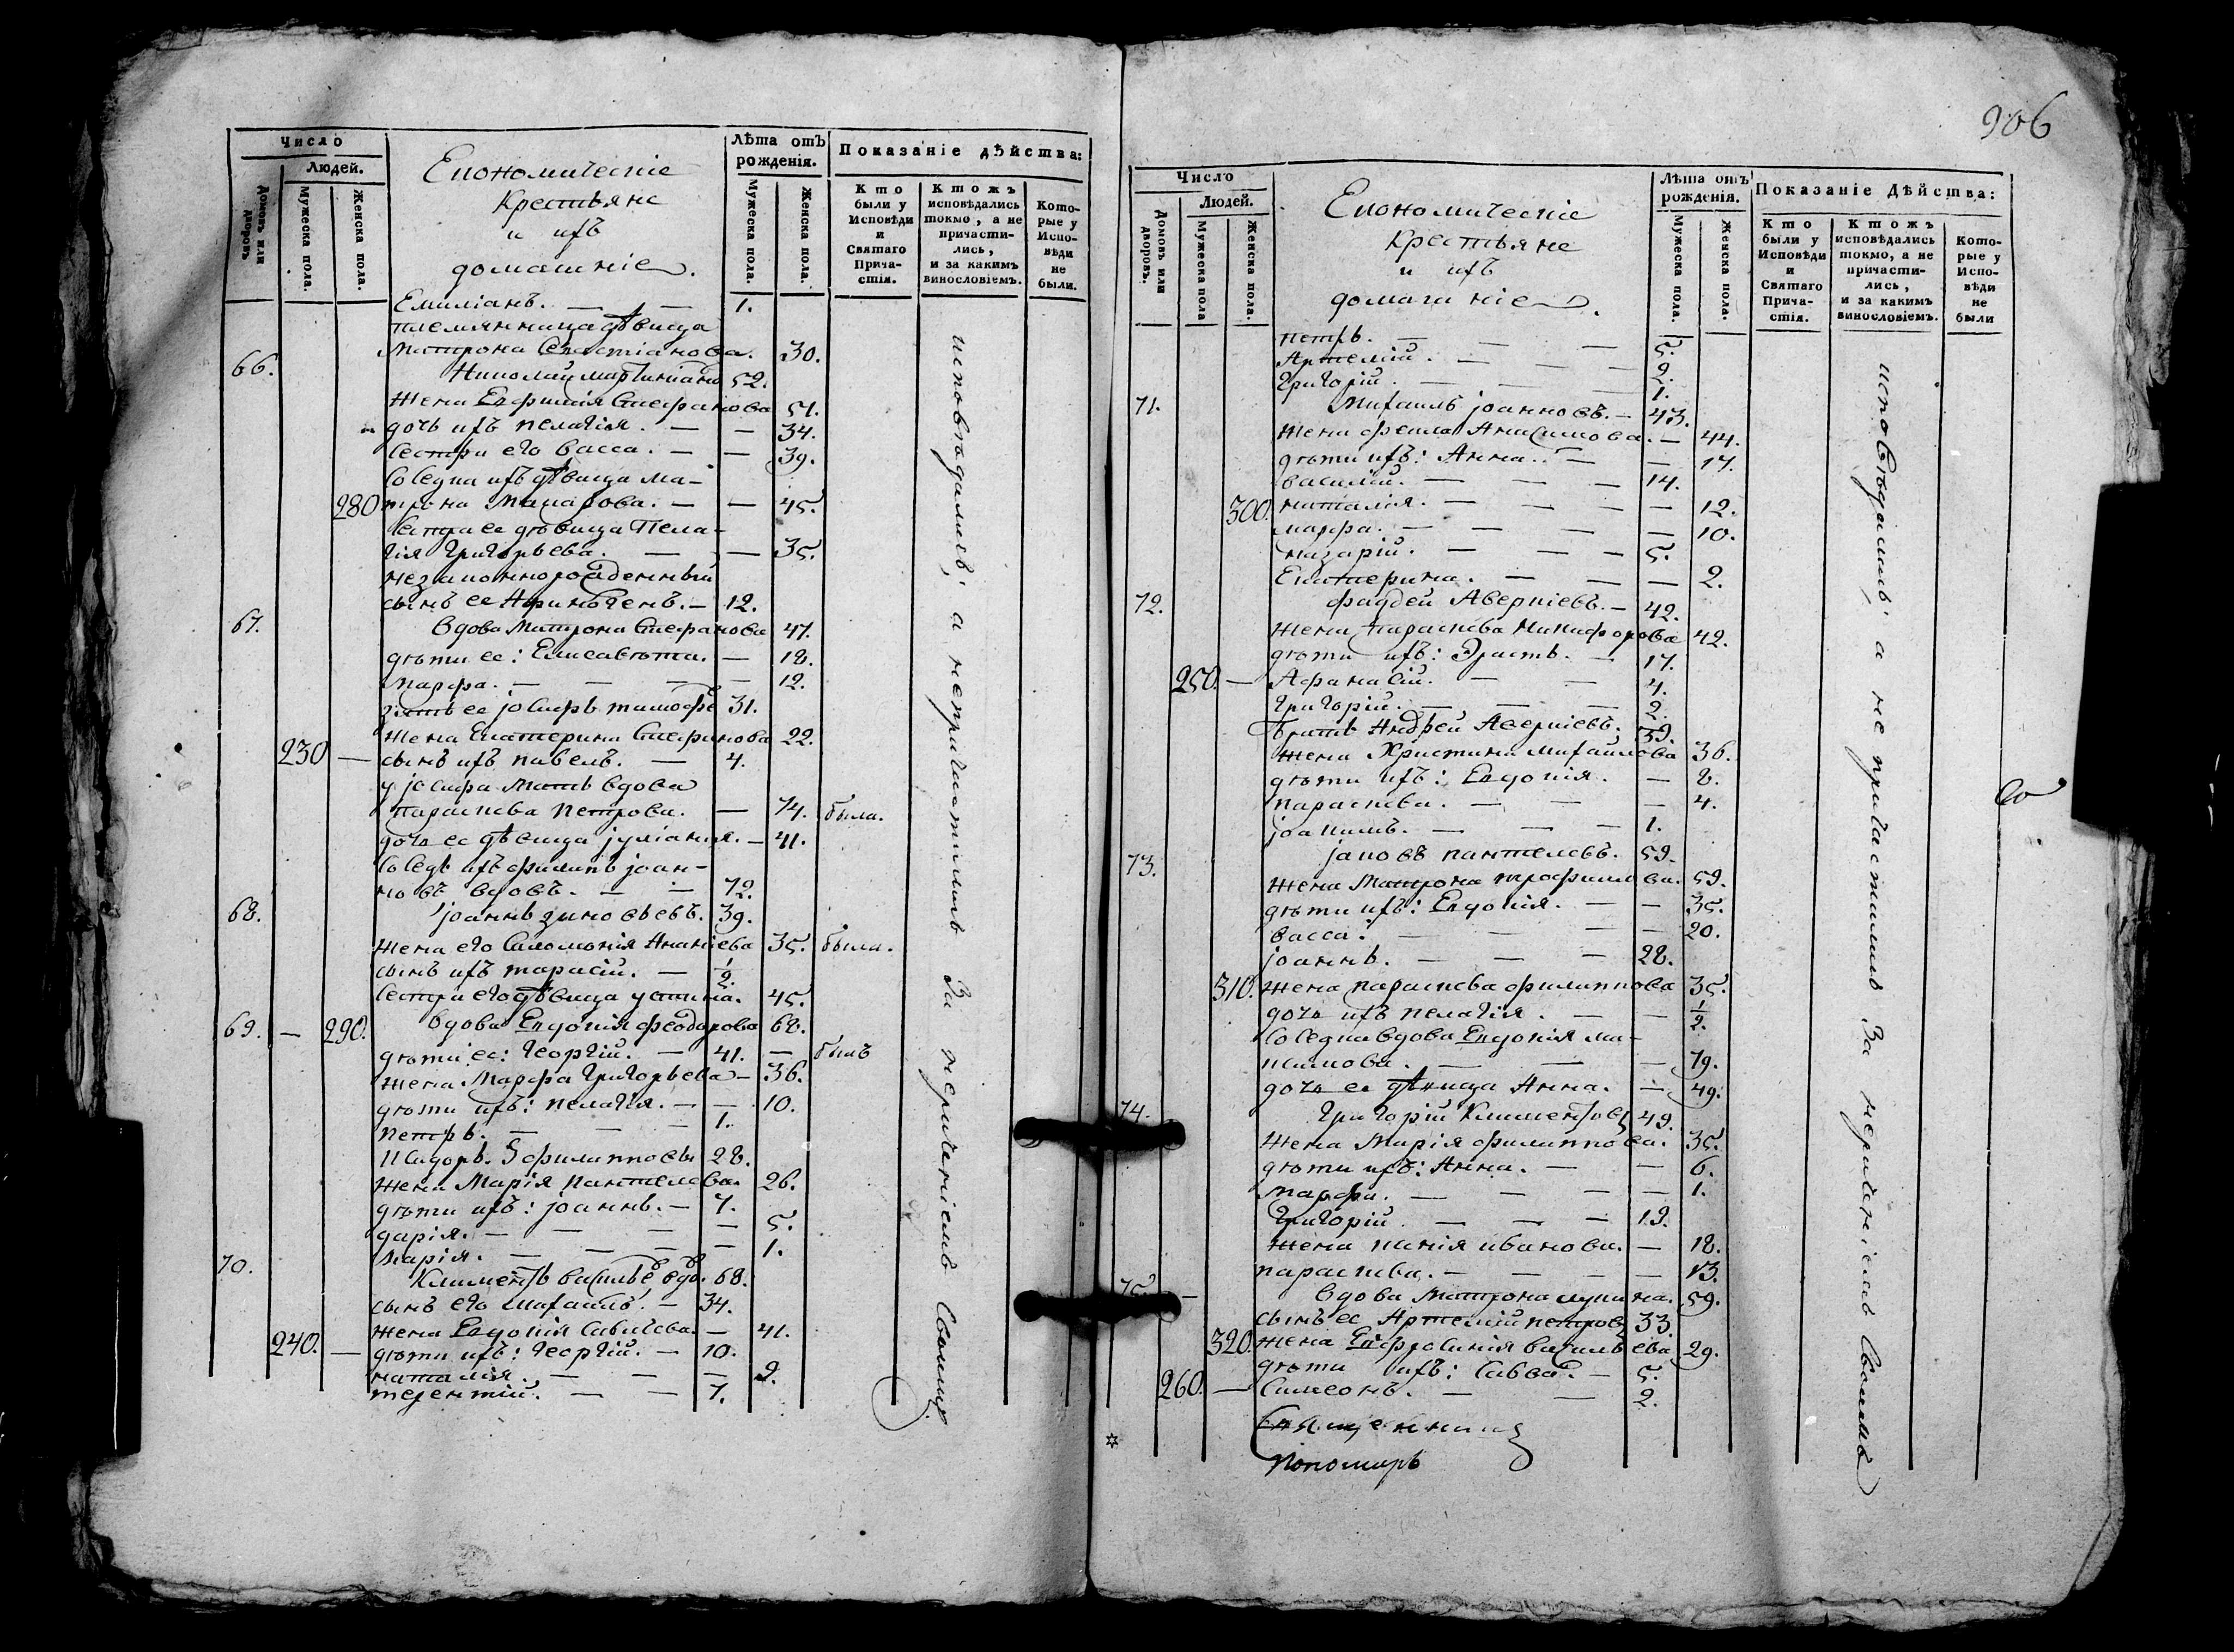 906
Число
Людей.
Домовъ или дворовъ
Мужеска пола.
Женска пола.
Економическіе
крестьяне
и ихъ
домашніе.
Лѣта отъ рожденія.
Мужеска пола.
Женска пола.
Показаніе дѣйства:
Кто были у Исповѣди и Святаго Причастія.
Ктожъ исповѣдались токмо, а не причастились, и за какимъ винословіемъ.
Которые у Исповѣди не были.
Емиліанъ. — — 1.
племянница дѣвица
Матрона Севастіанова. 30.
66. Николай Мартиніанов 52.
жена Евфимія Стефанова 51.
дочь ихъ Пелагія. — — 34.
сестра его Васса. — — 39.
Соседка ихъ дѣвица Ма-
280 трона Макарова. — — 45.
Сестра ее дѣвица Пела-
гія Григорьева. — — 35.
незаконнорожденный
сынъ ее — 12.
67. Вдова Матрона Стефанова 47.
дѣти ее: Елисавѣта. — 18.
Марфа. — — — 12.
зять ее Іосифъ Тимофе 31.
жена Екатерина Стефанова 22.
230 — сынъ ихъ Павелъ. — 4.
у Іосифа мать вдова
Параскева Петрова. — 74. была.
дочь ее дѣвица Іуліанія. — 41.
Соседъ ихъ Филипъ Іоан-
новъ вдовъ. — — 72.
68. Іоаннъ Зиновьевъ. 39.
жена его Саломонія Ананіева 35. была.
сынъ ихъ Тарасій. — 1/2.
Сестра его дѣвица Устина. 45.
69. — 290. Вдова Евдокія Феодорова 68.
дѣти ее: Георгій. — 41. — былъ
жена. Марфа Григорьева — 36.
дѣти ихъ: Пелагія. — — 10.
Петръ. — — — 1.
Исидоръ. Филипповы 28.
жена Марія Пантелеева. 26.
дѣти ихъ: Іоаннъ. — 7.
Дарія. — — — — 5.
Марія. — — — — 1.
70. Климентъ Василье вдо. 68.
сынъ его Михаилъ. — 34.
жена Евдокія Савичева. — 41.
240. — дѣти ихъ: Георгій. — 10.
Наталія. — — — 9.
Терентій. — — 7.
исповѣдались, а непричастились За нерачениемъ Своимъ
Число
Людей.
Домовъ или дворовъ.
Мужеска пола
Женска пола.
Економическіе
крестьяне
и ихъ
домашніе.
Лѣта отъ рожденія.
Мужеска пола.
Женска пола.
Показаніе Дѣйства:
Кто были у Исповѣди и Святаго Причастія.
Ктожъ исповѣдались токмо, а не причастились, и за какимъ винословіемъ.
Которые у Исповѣди не были
Петръ. — — — 5.
Артемій. — — — 2.
Григорій. — — — 1.
71. Михаилъ Іоанновъ. — 43.
жена Фекла Анисимова. — 44.
дѣти ихъ: Анна. — — 17.
Василій. — — — 14.
300. Наталія. — — — — 12.
Марфа. — — — — 10.
Назарій. — — — 5.
Екатерина. — — — 2.
72. Фаддей Аверкіевъ. — 42.
жена Параскева Никифорова 42.
дѣти ихъ: Эрастъ. — 17.
250. — Афанасій. — — 4.
Григорій. — — — 2.
Братъ Андрей Аверкіевъ. 39.
жена Христина Михайлова 36.
дѣти ихъ: Евдокія. — 8.
Параскева. — — — 4.
Іоакимъ. — — — 1.
73. Іаковъ Пантелеевъ. 59.
жена Матрона Трофимова. 59.
дѣти ихъ: Евдокія. — — 35.
Васса. — — — — 20.
Іоаннъ. — — — 28.
310. жена Параскева Филиппова 35.
дочь ихъ Пелагія. — — 1/2.
Соседка вдова Евдокія Ма-
кимова. — — — 79.
дочь ее дѣвица Анна. — 49.
74. Григорій Климентовъ 49.
жена Марія Филиппова. 35.
дѣти ихъ: Анна. — — 6.
Марфа. — — — — 1.
Григорій. — — — 19.
жена Ксенія Иванова. — 18.
Параскева. — — — — 13.
75. — Вдова Матрона Лукина. 59.
сынъ ее Артемій Петровъ 33.
320. жена Евфросинія Васильева 29.
дѣти ихъ: Савва. — 5.
260. — Симеонъ. — — 2.
исповѣдались, а не причастились За нерачениемъ Своимъ
Священникъ
Пономарь